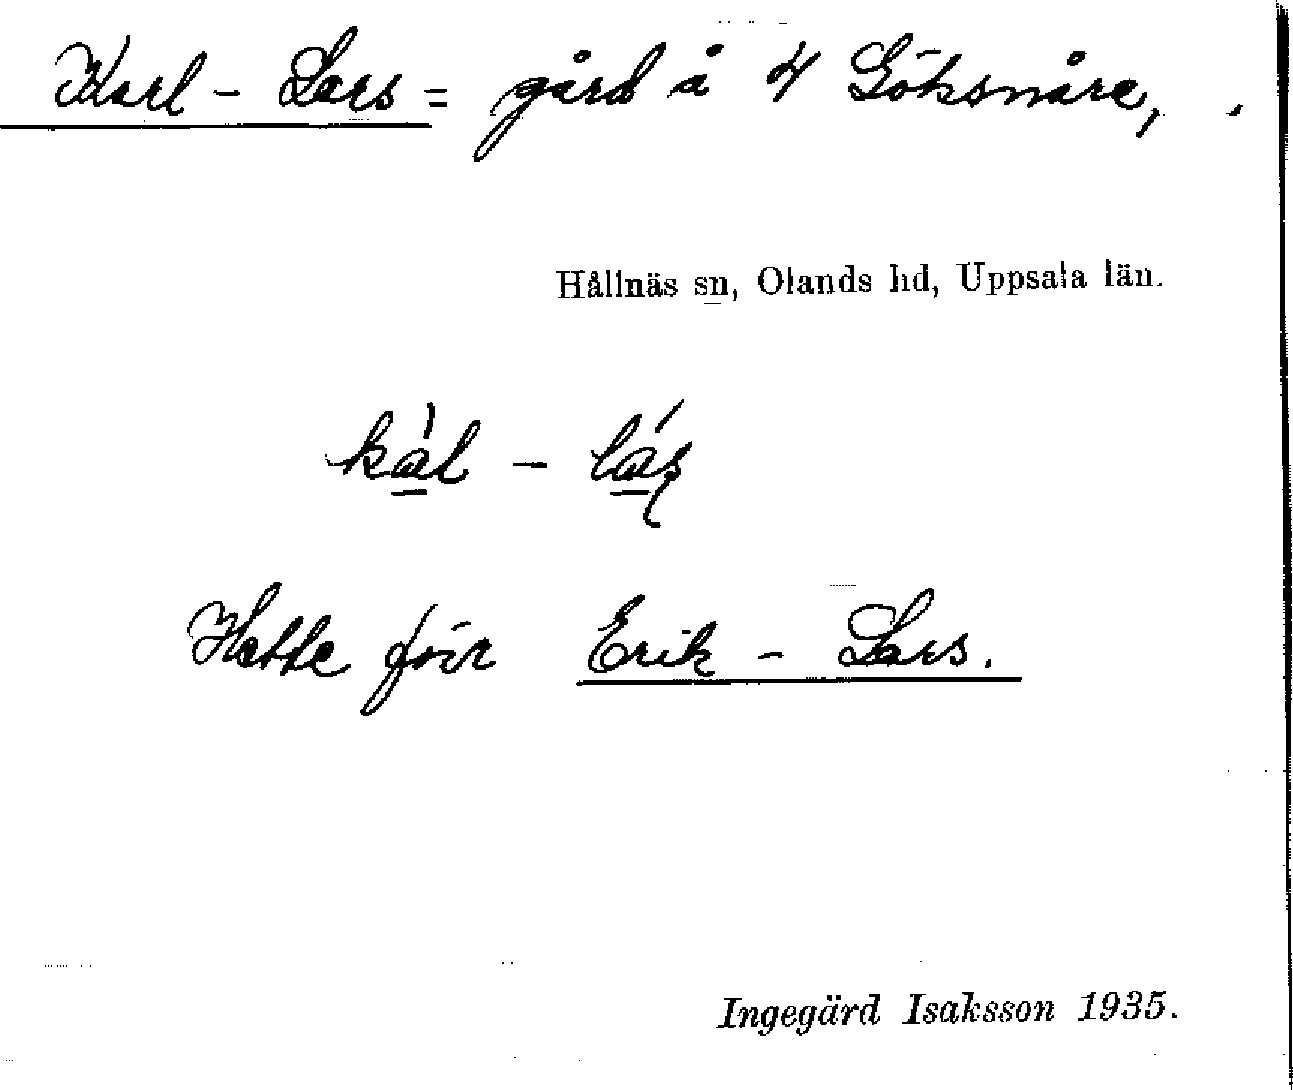 Karl - Lars = gård å 4 Göksnåre,
Hållnäs sn, Olands hd, Uppsala län.
kál - lás
Hette förr Erik - Lars.
Ingegärd Isaksson 1935.